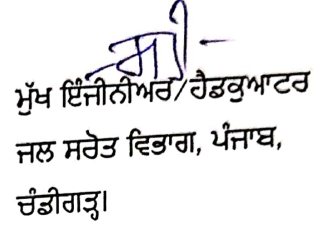 ਸਹੀ-
ਮੁੱਖ ਇੰਜੀਨੀਅਰ/ਹੈਡਕੁਆਟਰ
ਜਲ ਸਰੋਤ ਵਿਭਾਗ, ਪੰਜਾਬ,
ਚੰਡੀਗੜ੍ਹ।